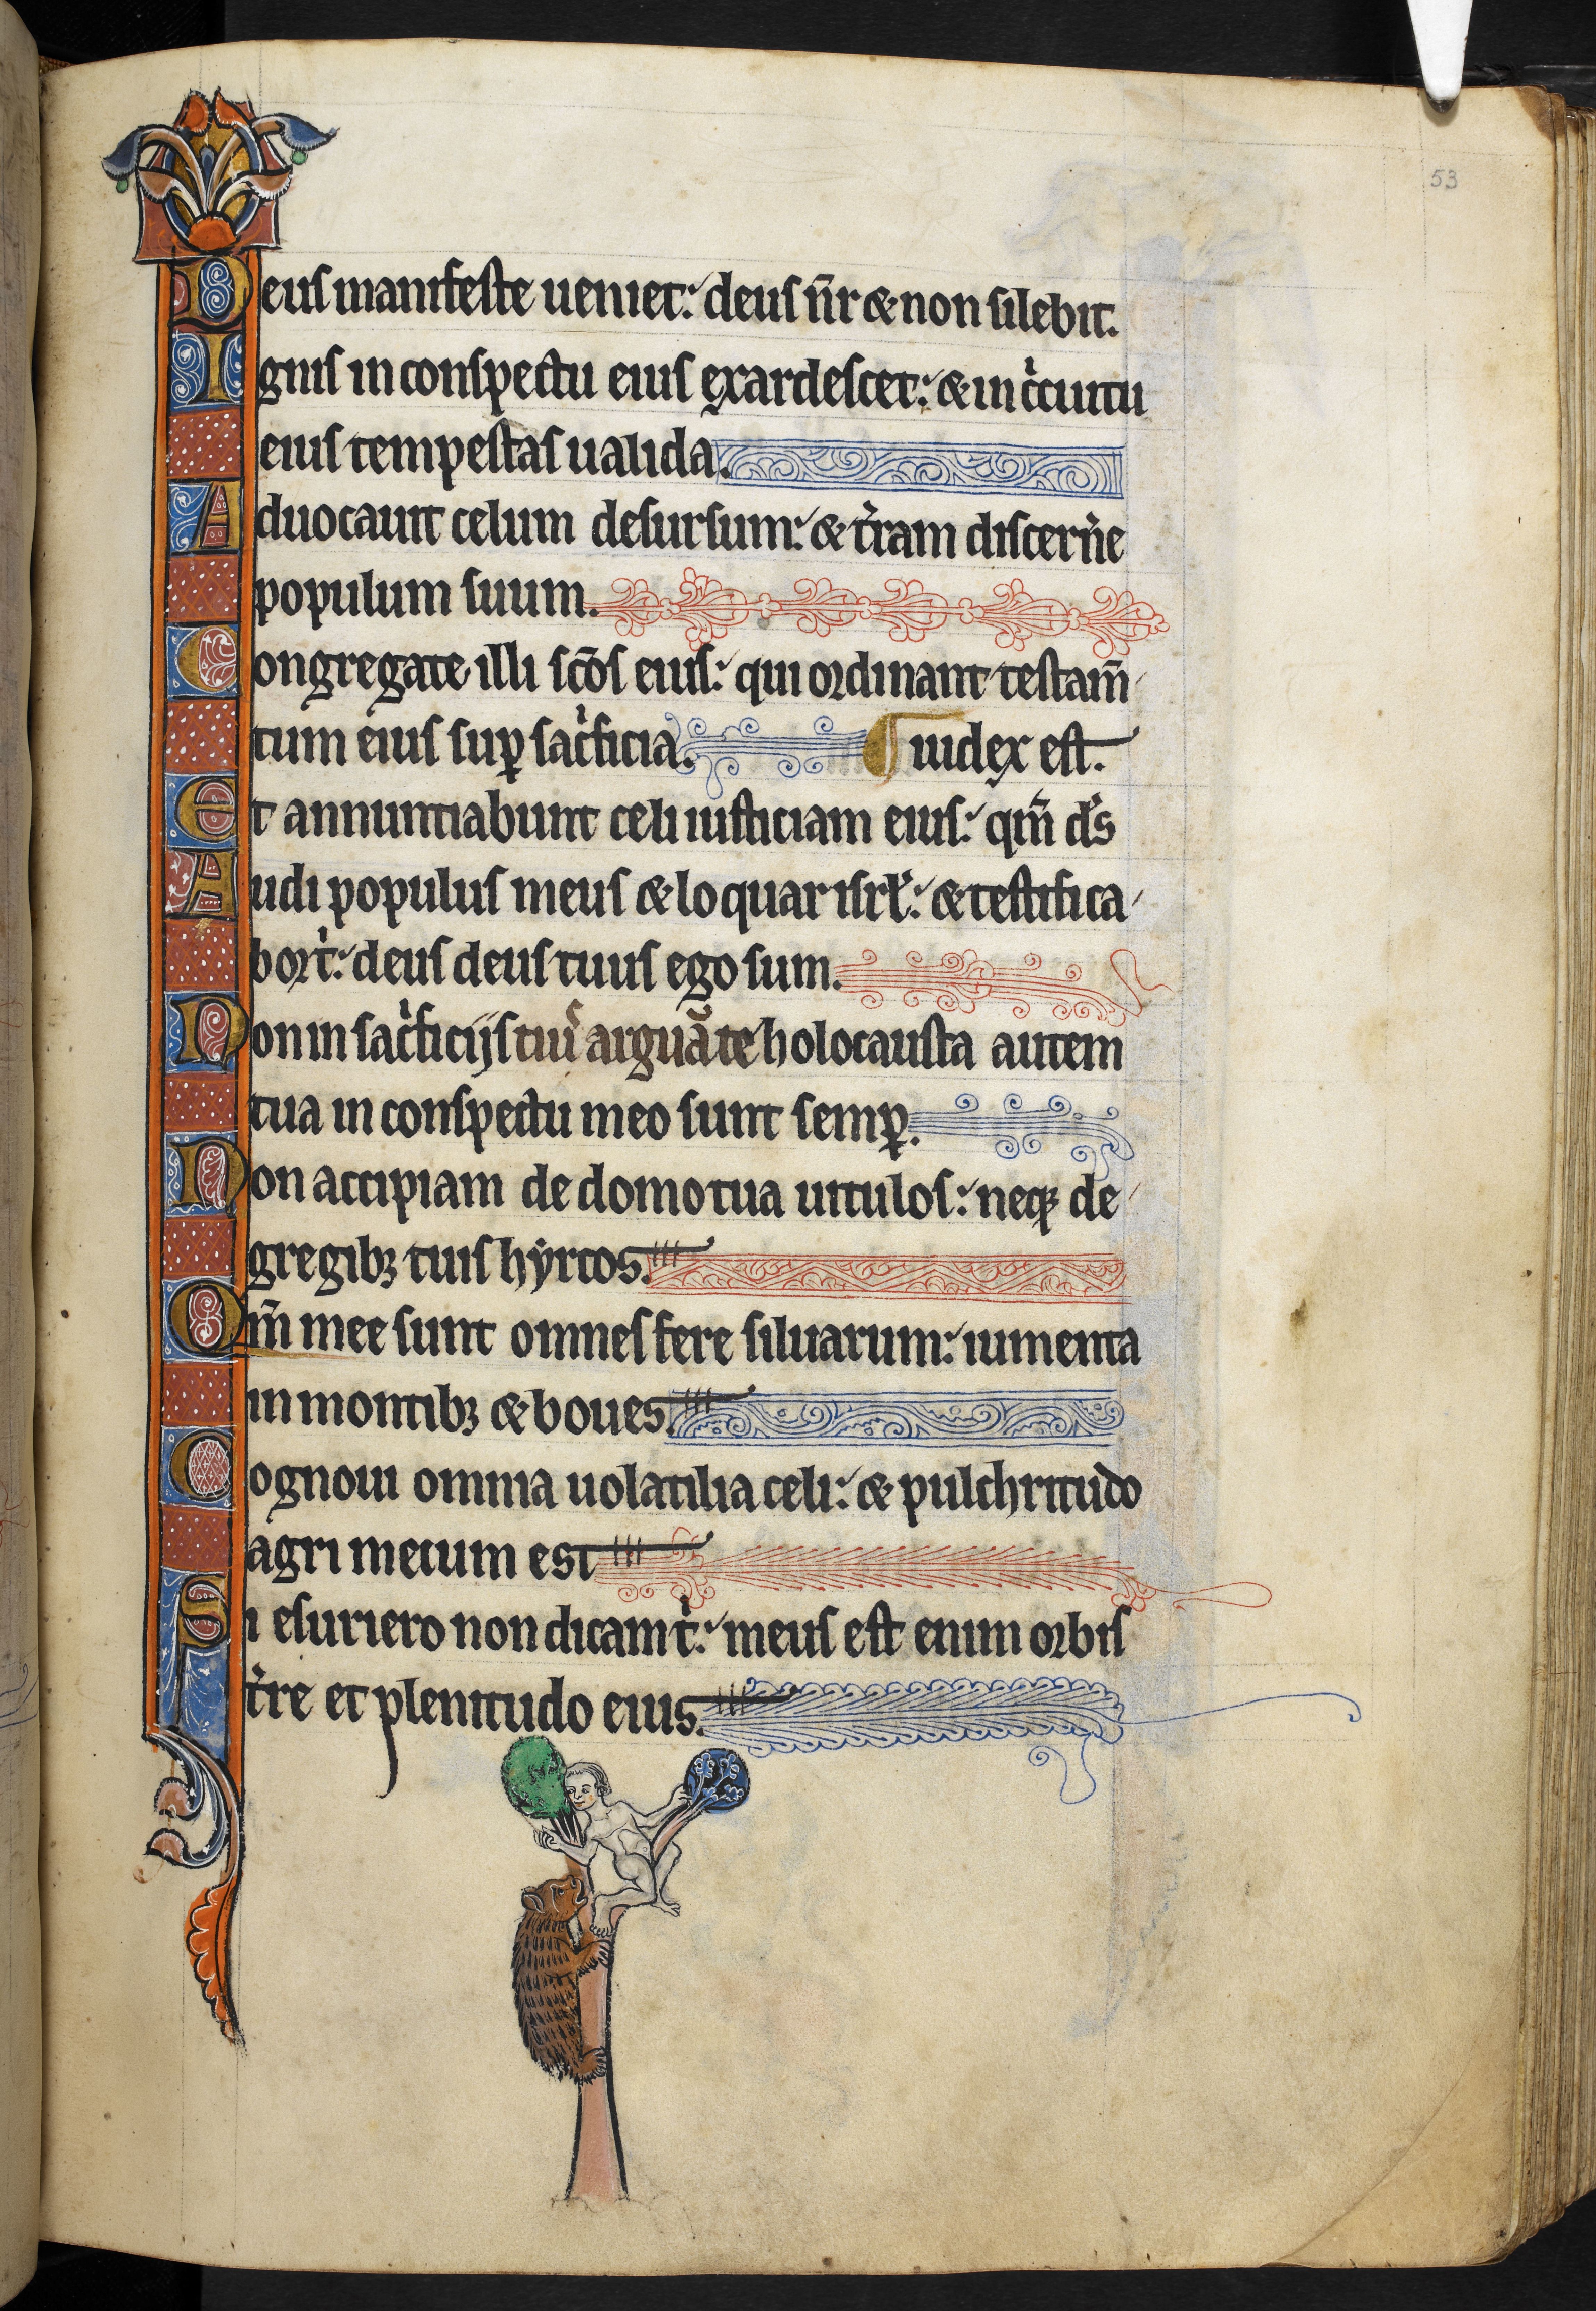 53
Deus manifeste ueniet: deus nr̄ & non silebit.
Ignis in conspectu eius exardescet: & in ccuitu
eius tempestas ualida.
Aduocauit celum desursum: & tram discerne
populum suum.
Congregate illi scōs eius: qui ordinant testam̄
tum eius sup sacficia. iudex est.
Et annuntiabunt celi iusticiam eius: qm̄ ds
Audi populus meus & loquar isrl: & testifica
bor t: deus deus tuus ego sum.
Non in sacficijs tuis arguā te holocausta autem
tua in conspectu meo sunt semp.
Non accipiam de domo tua uitulos: neq; de
gregib; tuis hyrcos.
Qm̄ mee sunt omnes fere siluarum: iumenta
in montib; & boues.
Cognoui omnia uolatilia celi: & pulchritudo
agri mecum est
Si esuriero non dicam t: meus est enim orbis
tre et plenitudo eius.